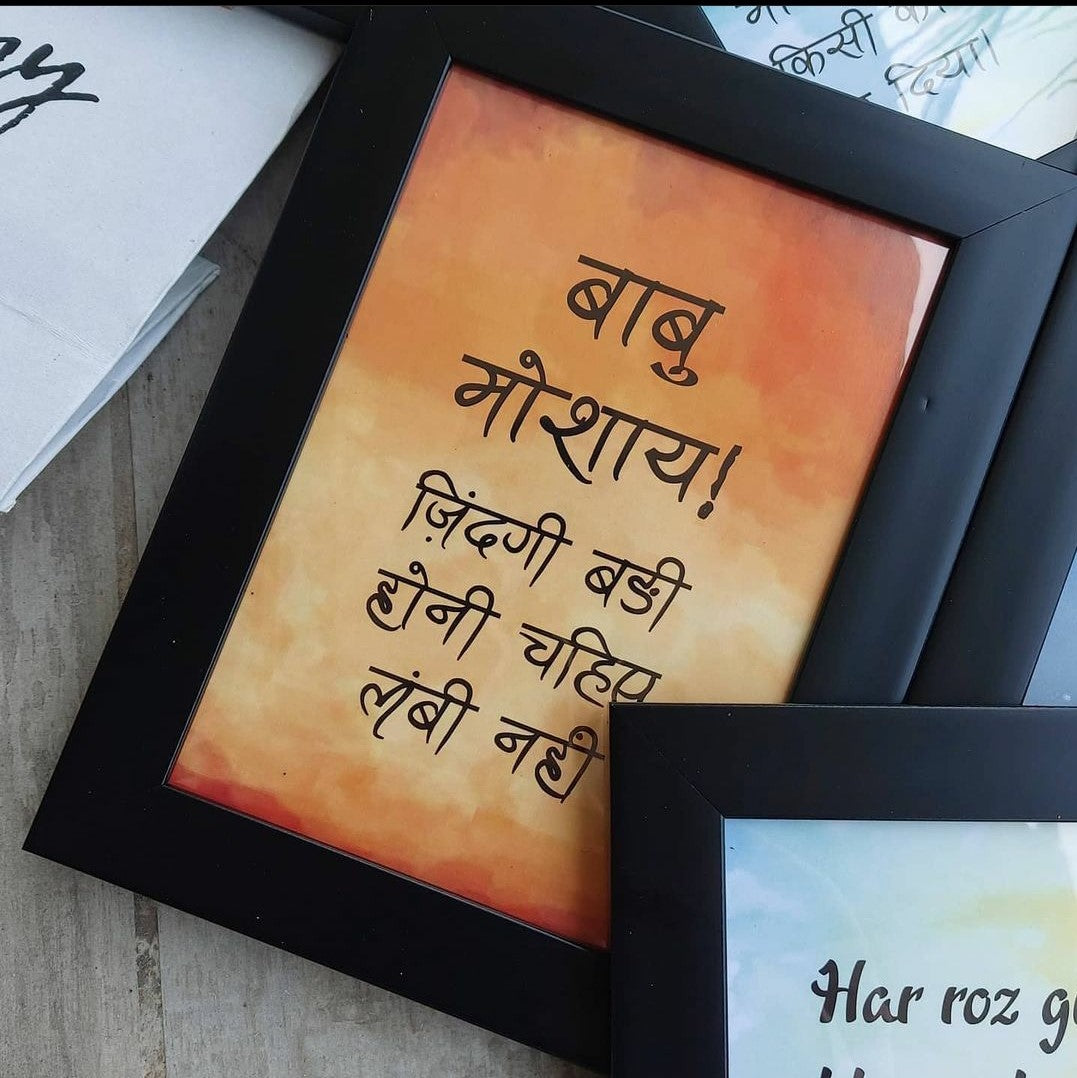 किसी
दिया।
बाबु
मोशाय!
ज़िंदगी बडी
होनी चहिए
लंबी नहीं
Har roz